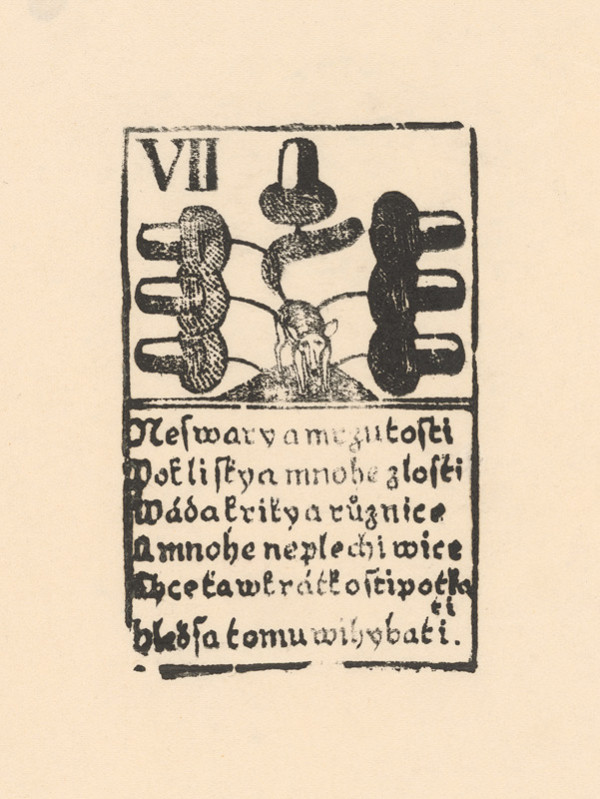 VII
Neswary a mrzutosti
Pokliſky a mnohe zloſti
Wáda křiky a různice
A mnohe neplechi wice
Chce ťa wkrátkoſti potka
ti
hledſa tomu wihybati.